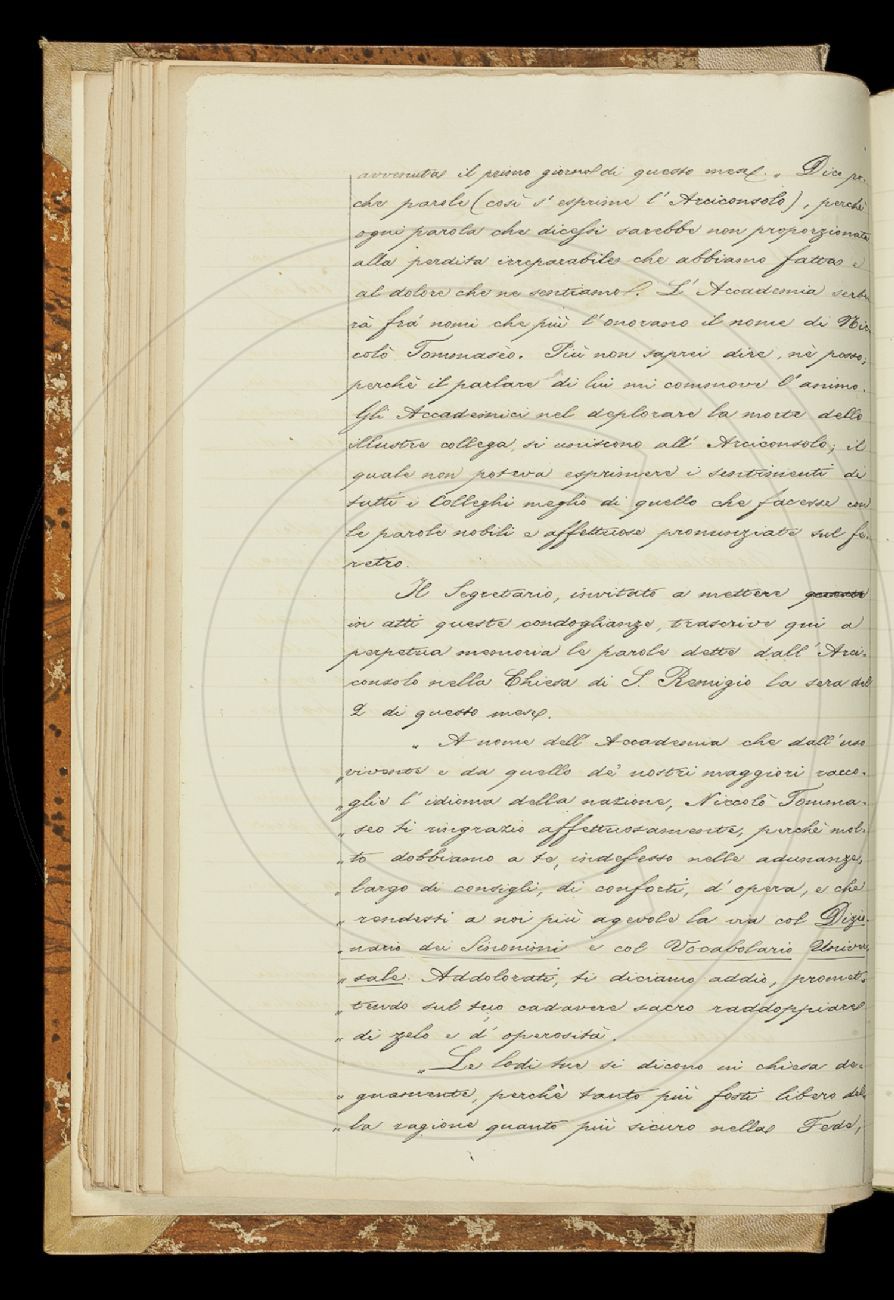 avvenuta il primo giorno di questo mese. „ Dico po-
che parole (così s'esprime l'Arciconsolo), perchè
ogni parola che dicessi sarebbe non proporzionata
alla perdita irreparabile che abbiamo fatta e
al dolore che ne sentiamo. L'Accademia serbe-
rà frà nomi che più l'onorano il nome di Nic-
colò Tommaseo. Più non saprei dire, nè posso;
perchè il parlare di lui mi commove l'animo.
Gli Accademici nel deplorare la morte dello
illustre collega, si uniscono all'Arciconsolo; il
quale non poteva esprimere i sentimenti di
tutti i Colleghi meglio di quello che facesse con
le parole nobili e affettuose pronunziate sul fe-
retro.
Il Segretario, invitato a mettere
in atti queste condoglianze, trascrive qui a
perpetua memoria le parole dette dall'Arci-
consolo nella Chiesa di S. Remigio la sera del
2 di questo mese.
„ A nome dell'Accademia che dall'uso
vivente e da quello de' nostri maggiori racco-
„ glie l'idioma della nazione, Niccolò Tomma-
„ seo ti ringrazio affettuosamente, perchè mol-
„ to dobbiamo a te, indefesso nelle adunanze,
„ largo di consigli, di conforti, d'opera, e che
„ rendesti a noi più agevole la via col Dizio-
„ nario dei Sinonimi e col Vocabolario Univer-
„ sale. Addolorati, ti diciamo addio, promet-
„ tendo sul tuo cadavere sacro raddoppiare
„ di zelo e d'operosità.
„ Le lodi tue si dicono in chiesa de-
„ gnamente, perchè tanto più fosti libero del-
„ la ragione quanto più sicuro nella Fede,